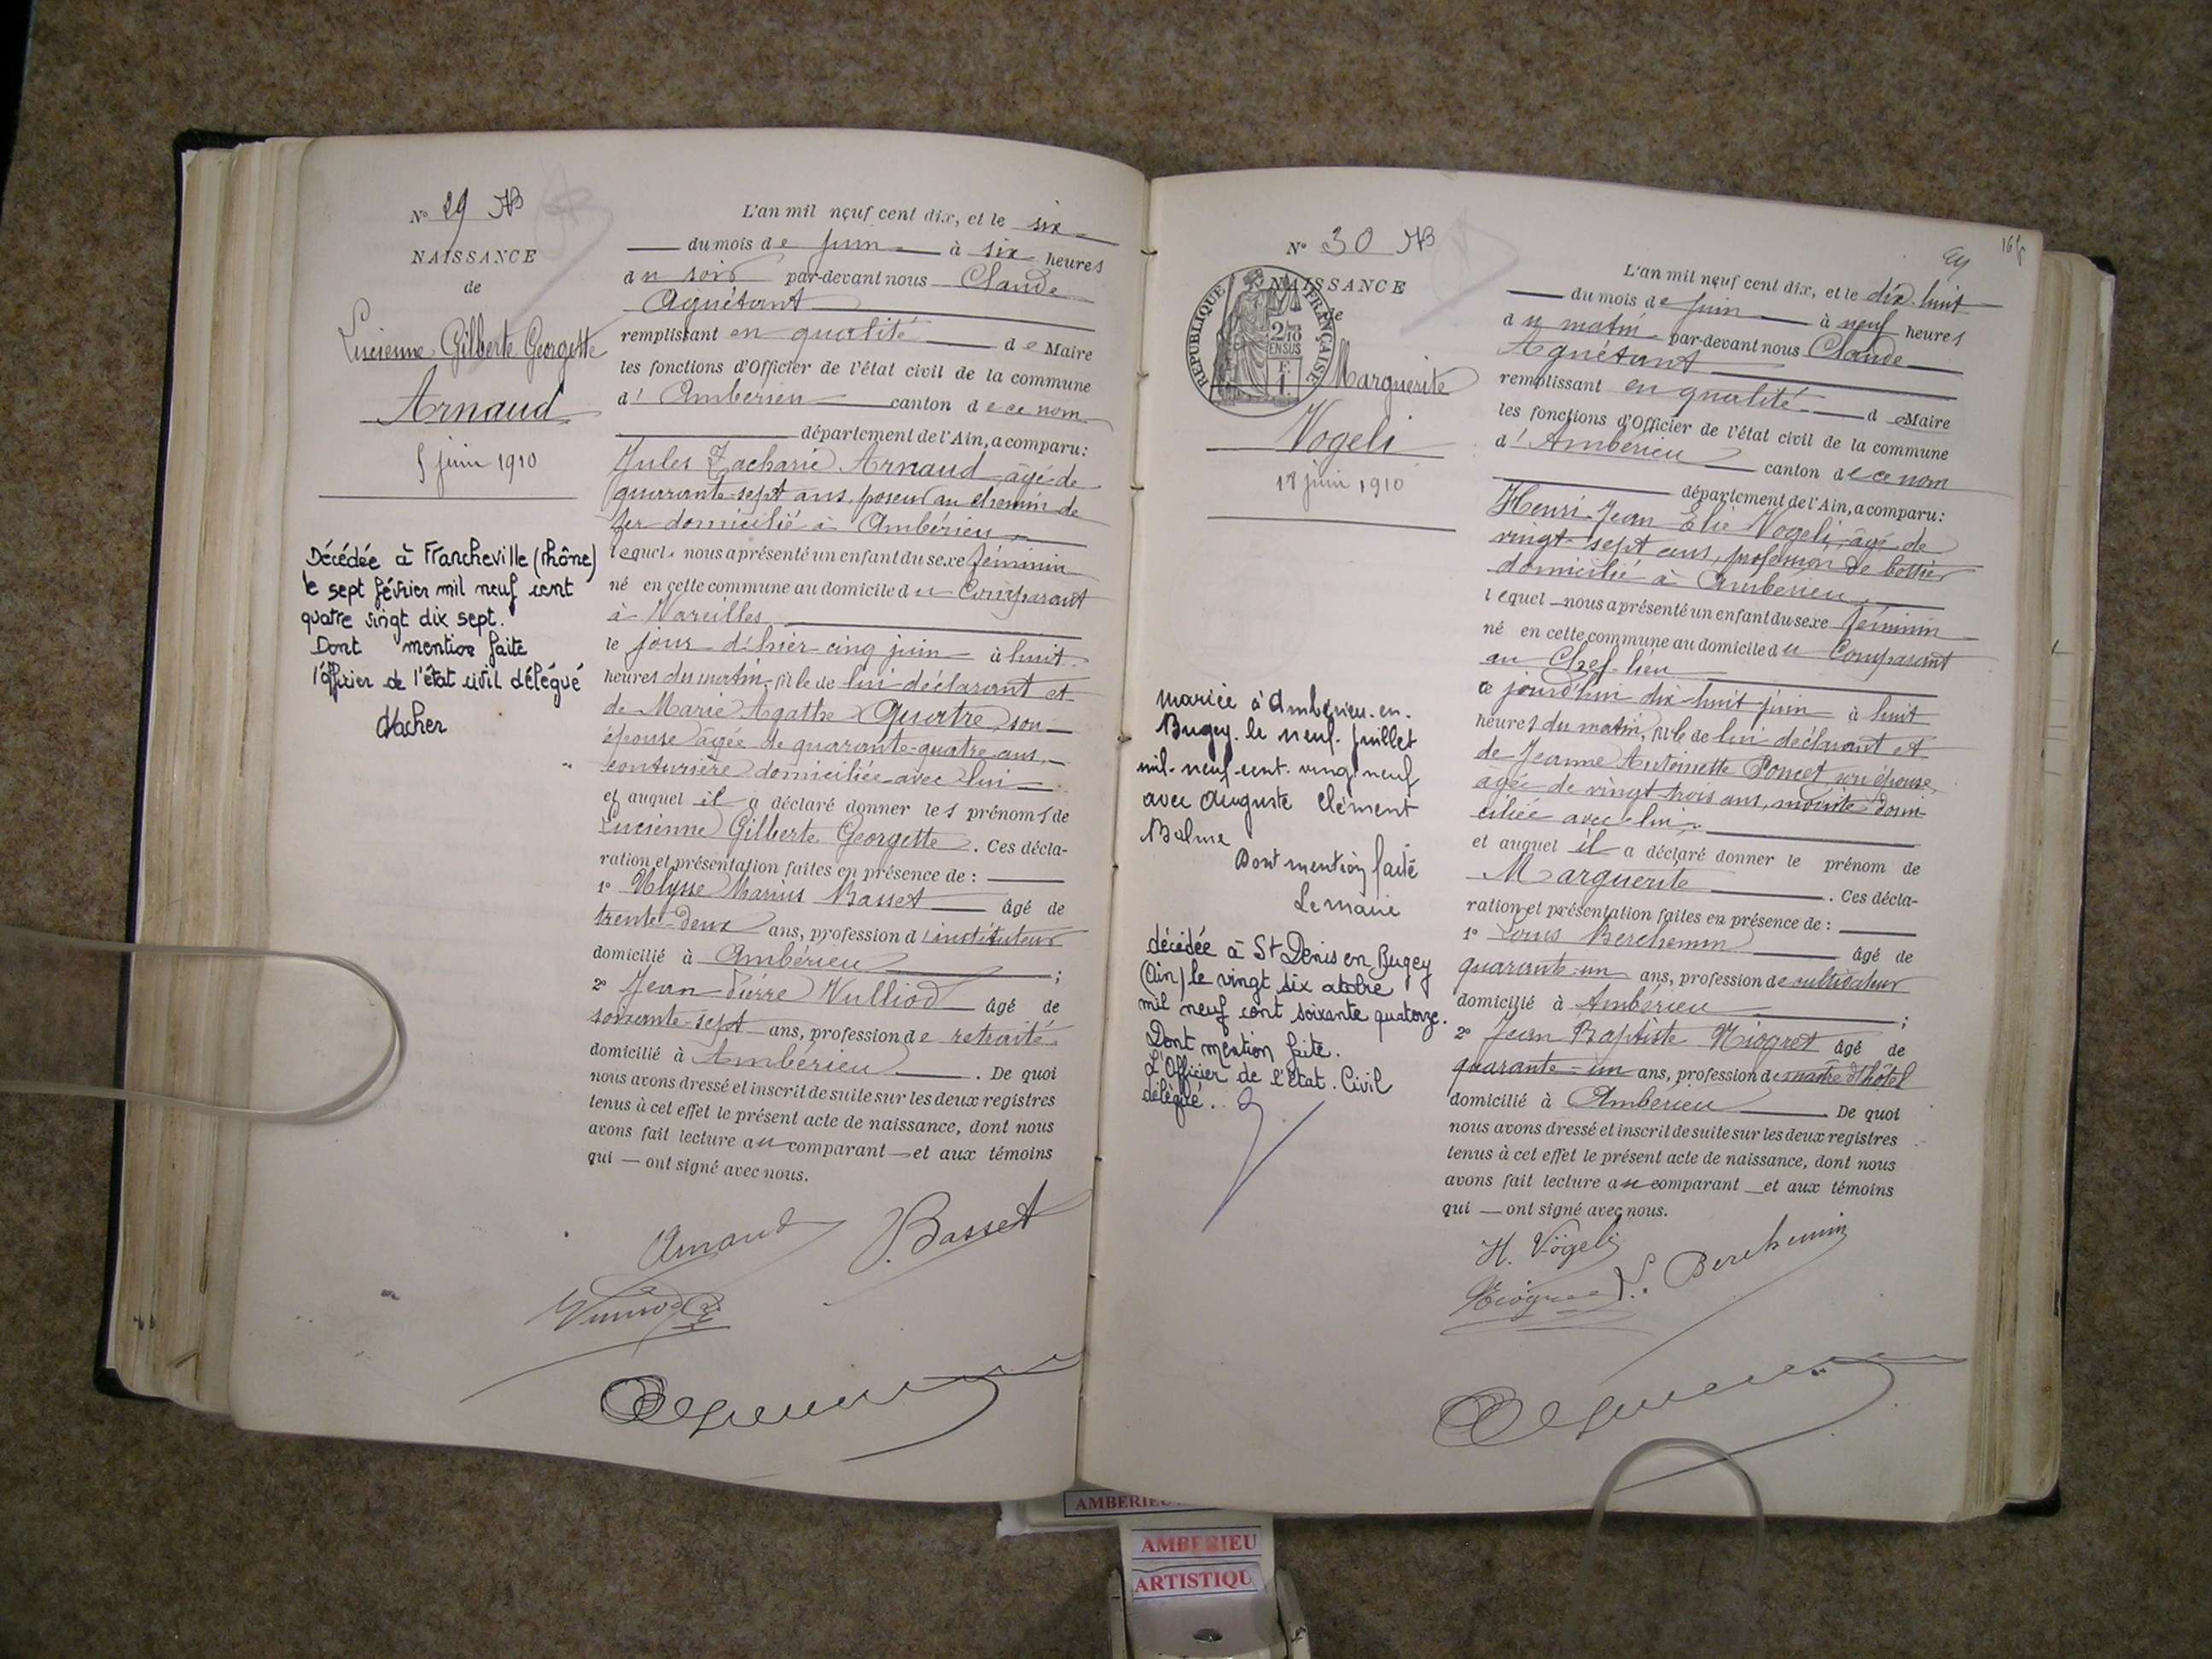 N° 29 AB
NAISSANCE
de
Lucienne Gilberte Georgette
Arnaud
5 juin 1910
Décédée à Francheville (Rhône)
le sept février mil neuf cent
quatre vingt dix sept.
Dont mention faite
l'officier de l'état civil délégué
L'an mil neuf cent dix, et le six
du mois de juin à six heures
du soir par-devant nous Claude
Aguétant
remplissant en qualité de Maire
les fonctions d'Officier de l'état civil de la commune
d'Ambérieu canton de ce nom
département de l'Ain, a comparu:
Jules Zacharie Arnaud âgé de
quarante-sept ans, poseur au chemin de
fer domicilié à Ambérieu
lequel nous a présenté un enfant du sexe féminin
né en cette commune au domicile du Comparant
à Vareilles
le jour d'hier cinq juin à huit
heures du matin, fille de lui déclarant et
de Marie Agathe Quatre, son
épouse âgée de quarante-quatre ans,
couturière domiciliée avec lui
et auquel il a déclaré donner les prénoms de
Lucienne Gilberte Georgette. Ces décla-
ration et présentation faites en présence de :
1° Ulysse Marius Basset âgé de
trente-deux ans, profession d'instituteur
domicilié à Ambérieu ;
2° Jean Pierre Vulliod âgé de
soixante-sept ans, profession de retraité
domicilié à Ambérieu. De quoi
nous avons dressé et inscrit de suite sur les deux registres
tenus à cet effet le présent acte de naissance, dont nous
avons fait lecture au comparant et aux témoins
qui ont signé avec nous.
Arnaud Basset
N° 30 AB
NAISSANCE
de
RÉPUBLIQUE FRANÇAISE
2/10
EN SUS
F.
1.
Marguerite
Vogeli
18 juin 1910
mariée à Ambérieu-en-
Bugey le neuf juillet
mil-neuf-cent-vingt neuf
avec Auguste Clément
Balme
Dont mention faite
Le maire
décédée à St Denis en Bugey
(Ain) le vingt six octobre
mil neuf cent soixante quatorze.
Dont mention faite.
L'Officier de l'état Civil
délégué.
L'an mil neuf cent dix, et le dix-huit
du mois de juin à neuf heures
du matin par-devant nous Claude
Aguétant
remplissant en qualité de Maire
les fonctions d'Officier de l'état civil de la commune
d'Ambérieu canton de ce nom
département de l'Ain, a comparu:
Henri-Jean Elie Vogeli, âgé de
vingt-sept ans, profession de bottier
domicilié à Ambérieu
lequel nous a présenté un enfant du sexe féminin
né en cette commune au domicile du Comparant
au Chef-lieu
ce jourd'hui dix-huit juin à huit
heures du matin, fille de lui déclarant et
de Jeanne Antoinette Poncet son épouse,
agée de vingt-trois ans, domi-
ciliée avec lui.
et auquel il a déclaré donner le prénom de
Marguerite. Ces décla-
ration et présentation faites en présence de :
1° Louis Berchemin âgé de
quarante-un ans, profession de cultivateur
domicilié à Ambérieu ;
2° Jean Baptiste Niogret âgé de
quarante-un ans, profession de maître d'hôtel
domicilié à Ambérieu De quoi
nous avons dressé et inscrit de suite sur les deux registres
tenus à cet effet le présent acte de naissance, dont nous
avons fait lecture au comparant et aux témoins
qui ont signé avec nous.
H. Vögeli
L. Berchemin
AMBERIEU
AMBERIEU
ARTISTIQU